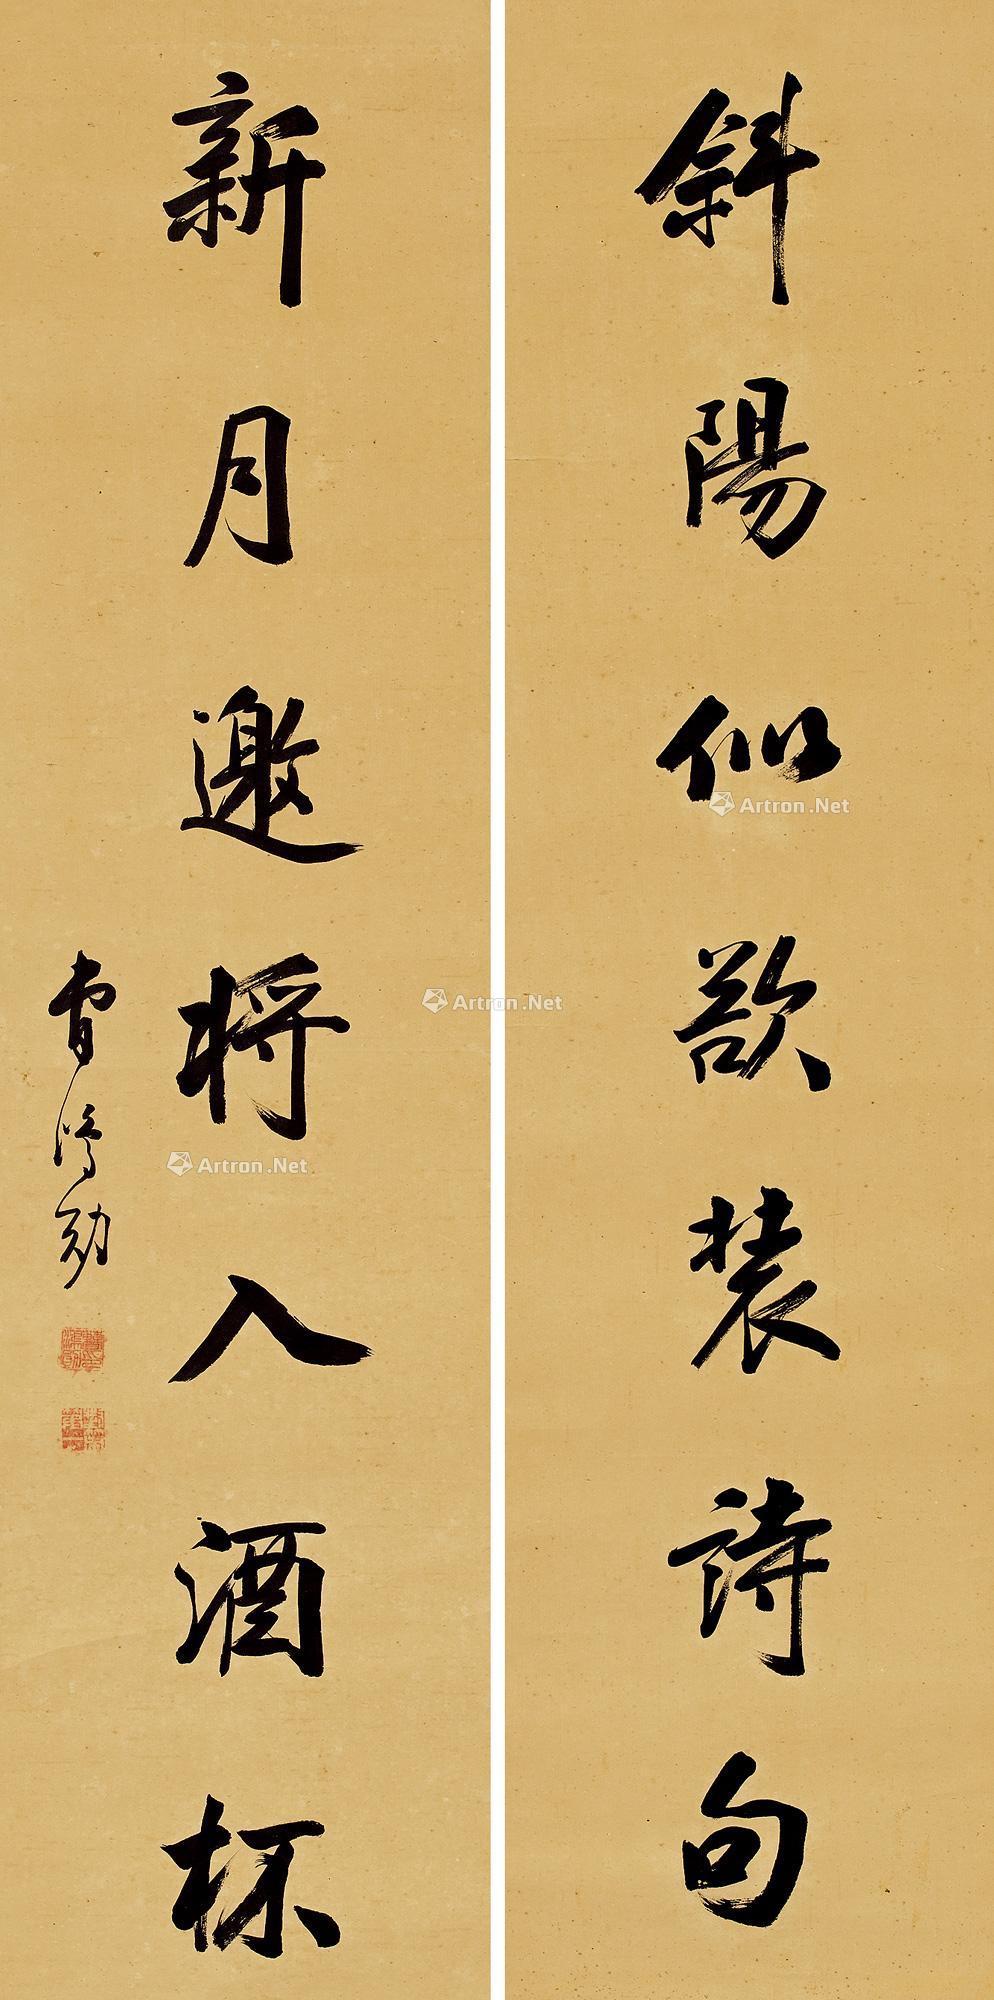 斜陽似欲裝詩句
新月邀將入酒杯
曹鴻勛
Artron.Net
Artron.Net
Artron.Net